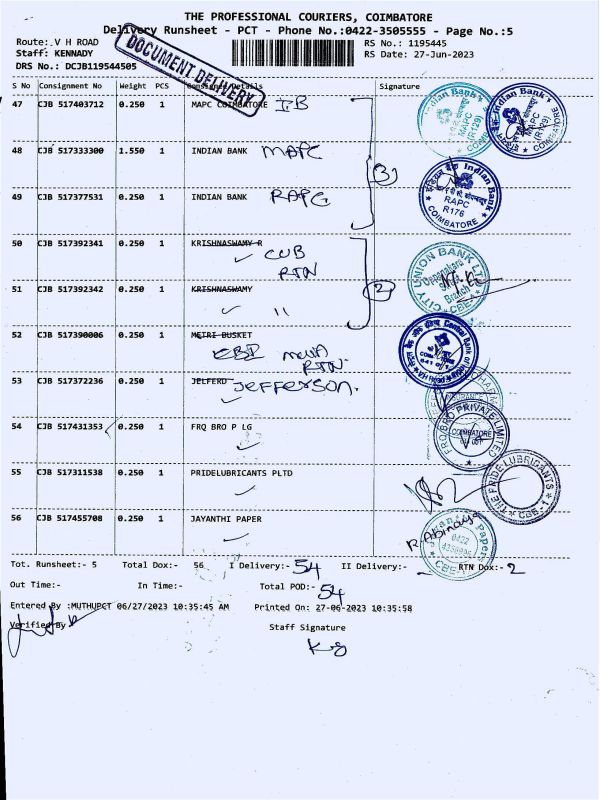 THE PROFESSIONAL COURIERS, COIMBATORE
Delivery Runsheet - PCT - Phone No.:0422-3505555 - Page No.:5
Route: V H ROAD RS No.: 1195445
Staff: KENNADY RS Date: 27-Jun-2023
DRS No.: DCJB119544505
DOCUMENT DELIVERY
S No Consignment No Weight PCS Consignee Details Signature
47 CJB 517403712 0.250 1 MAPC COIMBATORE IB
48 CJB 517333300 1.550 1 INDIAN BANK MAPC
3
49 CJB 517377531 0.250 1 INDIAN BANK RAPC
Indian Bank
MAPC
(R129)
Indian Bank
MAPC
(R129)
COIMBATORE
Indian Bank
RAPC
R176
COIMBATORE
50 CJB 517392341 0.250 1 KRISHNASWAMY R
CUB
RTN
51 CJB 517392342 0.250 1 KRISHNASWAMY 2
"
CITY UNION BANK LTD
Branch
CBE
52 CJB 517390006 0.250 1 METRI BUSKET
RTN
Central Bank of
53 CJB 517372236 0.250 1 JELFERD JEFFERSON.
54 CJB 517431353 0.250 1 FRQ BRO P LG
FRQ BRO PRIVATE LIMITED
COIMBATORE
55 CJB 517311538 1 0.250 PRIDELUBRICANTS PLTD
THE PRIDE LUBRICANTS
CBE-1
56 CJB 517455708 0.250 1 JAYANTHI PAPER
R Abinaya
0422
CBE
Tot. Runsheet:- 5 Total Dox:- 56 I Delivery:- 54 II Delivery:- RTN Dox:- 2
Out Time:- In Time:- Total POD:- 54
Entered By :MUTHUPCT 06/27/2023 10:35:45 AM Printed On: 27-06-2023 10:35:58
Verified By Staff Signature